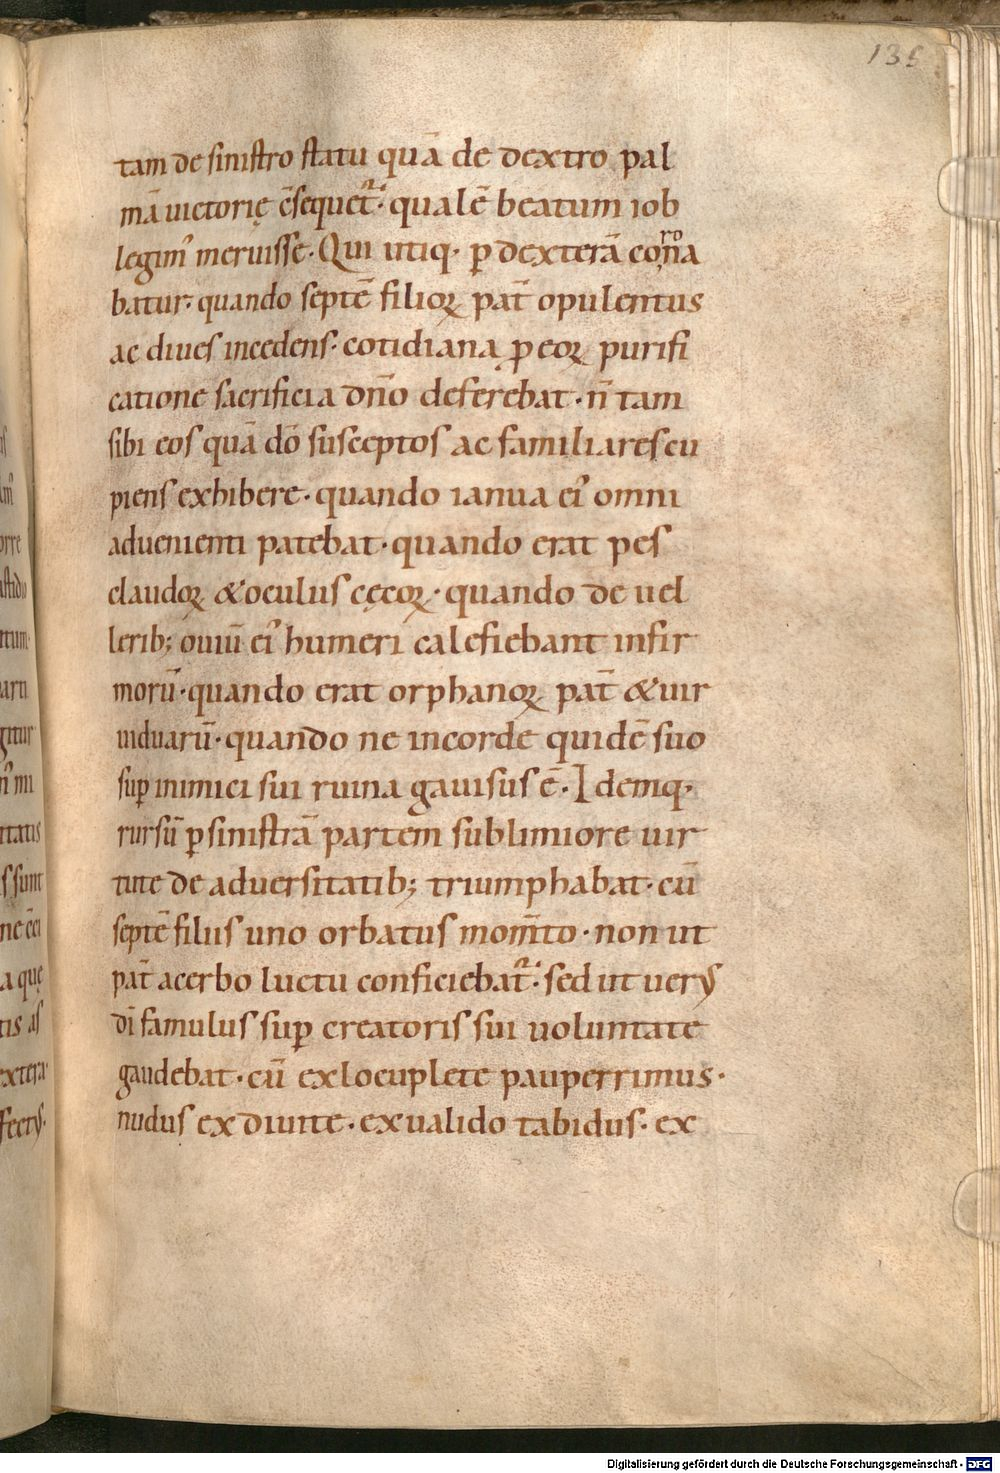 135
tam de sinistro statu quā de dextro pal
mā uictorię c̄sequet᷑· qualē beatum iob
legim᾽ meruisse· Qui utiq· ꝑ dexterā corona
batur· quando septē filioꝝ pat̄ opulentus
ac diues incedens· cotidiana ꝓ eoꝝ purifi
catione sacrificia dn̄o deferebat· n̄ tam
sibi eos quā dō susceptos ac familiares cu
piens exhibere· quando ianua ei᾽ omni
aduenienti patebat· quando erat pes
claudoꝝ & oculus cęcoꝝ· quando de uel
lerib; ouiū ei᾽ humeri calefiebant infir
morū· quando erat orphanoꝝ pat̄ & uir
uiduarū· quando ne in corde quidē suo
suꝑ inimici sui ruina gauisus ē· Idemq·
rursū ꝑ sinistrā partem sublimiore uir
tute de aduersitatib; triumphabat· cū
septē filiis uno orbatus mom̄to· non ut
pat̄ acerbo luctu conficiebat᷑· sed ut uerꝰ
dī famulus suꝑ creatoris sui uoluntate
gaudebat· cū ex locuplete pauperrimus·
nudus ex diuite· ex ualido tabidus· ex
Digitalisierung gefördert durch die Deutsche Forschungsgemeinschaft - DFG